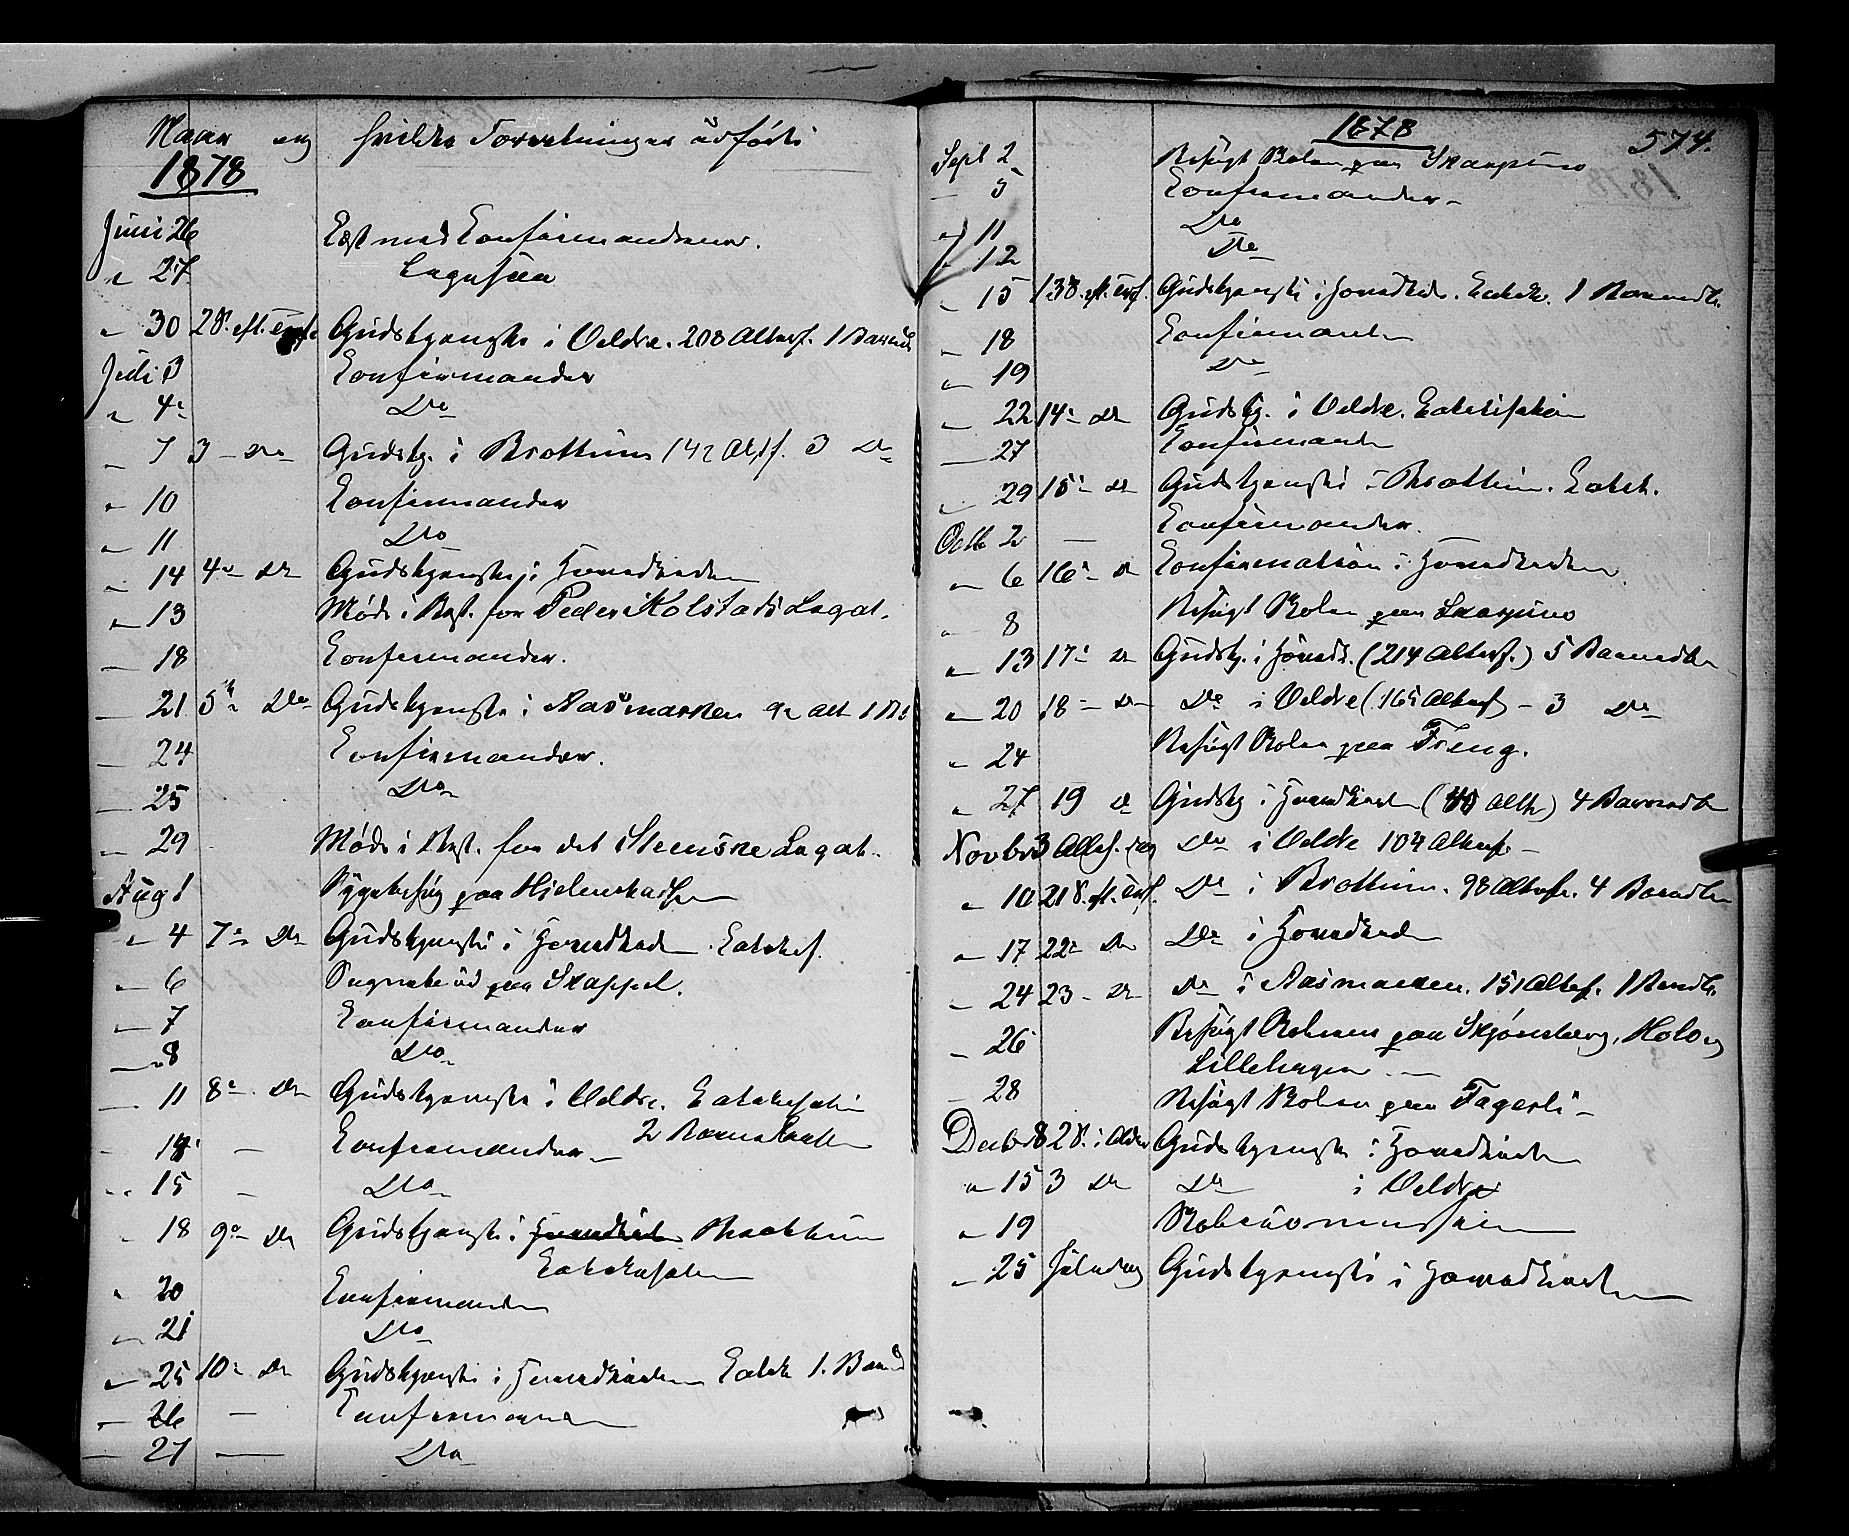 Naar og hvilke Forretninger udførte
1878
Juni 26 Læst med Konfirmanderne.
" 27 Lagnsøen
" 30 2 S. eft. Trefr. Gudstjeneste i Veldre. 208 Alterf. 1 Barned.
Juli 3 Konfirmander
" 4 Do
" 7 3 - Do Gudstj. i Brøttum 142 Altf. 3 Do
" 10 Konfirmander
" 11 Do
" 14 4 Do Gudstjeneste i Hovedkirken
" 13 Møde i Best. for Peder Kolstads Legat.
" 18 Konfirmander.
" 21 5 Do Gudstjeneste i Aasmarken 92 Alt 1 Bd
" 24 Konfirmander.
" 25 Do
" 29 Møde i Best. for det Stenske Legat.
Aug 1 Sygebesøg paa Hjelmstadsen
" 4 7 Do Gudstjeneste i Hovedkirken. Katekes.
" 6 Sognebud paa Skappel.
" 7 Konfirmander
" 8 Do
" 11 8 Do Gudstjeneste i Veldre. Katekesation
2 Barnedaab
" 14 - Konfirmander
" 15 - Do
" 18 9 Do Gudstjeneste i Hovedkirken Brøttum
Katekesation
" 20 Konfirmander
" 21 Do
" 25 10 Do Gudstjeneste i Hovedkirken Katek 1. Barned
" 26 - Konfirmander
" 27 - Do
1878 574.
Sept 2 Besøgt Skolen paa Skarpsno
- 5 Konfirmander
" 11 Do
" 12 Do
" 15 13 S. eft. Tref. Gudstjeneste i Hovedkirk. Katek. 1 Barnedb.
" 18 Konfirmander
" 19 Do
" 22 14 Do Gudstj. i Veldre. Katekisation
" 27 Konfirmander
" 29 15 Do Gudstjeneste i Brøttum. Katek.
Octb 2 - Konfirmander.
" 6 16 Do Konfirmation i Hovedkirken.
" 8 Besøgt Skolen paa Skarpsno
" 13 17 Do Gudstj. i Hovedk. (214 Alterf.) 5 Barnedb
" 20 18 - Do Do i Veldre (165 Alterf - 3 Do
" 24 Besøgt Skolen paa Freng.
" 27 19 Do Gudstj i Hovedkirken (40 Altk) 4 Barnedb
Novbr 3 Alleh. dag Do i Veldre 104 Alterf.
" 10 21 S. eft. Tref. Do i Brøttum. 98 Alterf. 4 Barnedb
" 17 22 Do Do i Hovedkirken
" 24 23 - Do Do i Aasmarken. 151 Alterf. 1 Barndb.
" 26 Besøgt Skolerne paa Skjønsberg, Holo og
Lillehagen
" 28 Besøgt Skolen paa Fagerli
Decbr 8 2 S. i Advent Gudstjeneste i Hovedkirken
" 15 3 Do Do i Veldre
" 19 Skolekommission
" 25 Juledag Gudstjeneste i Hovedkirken